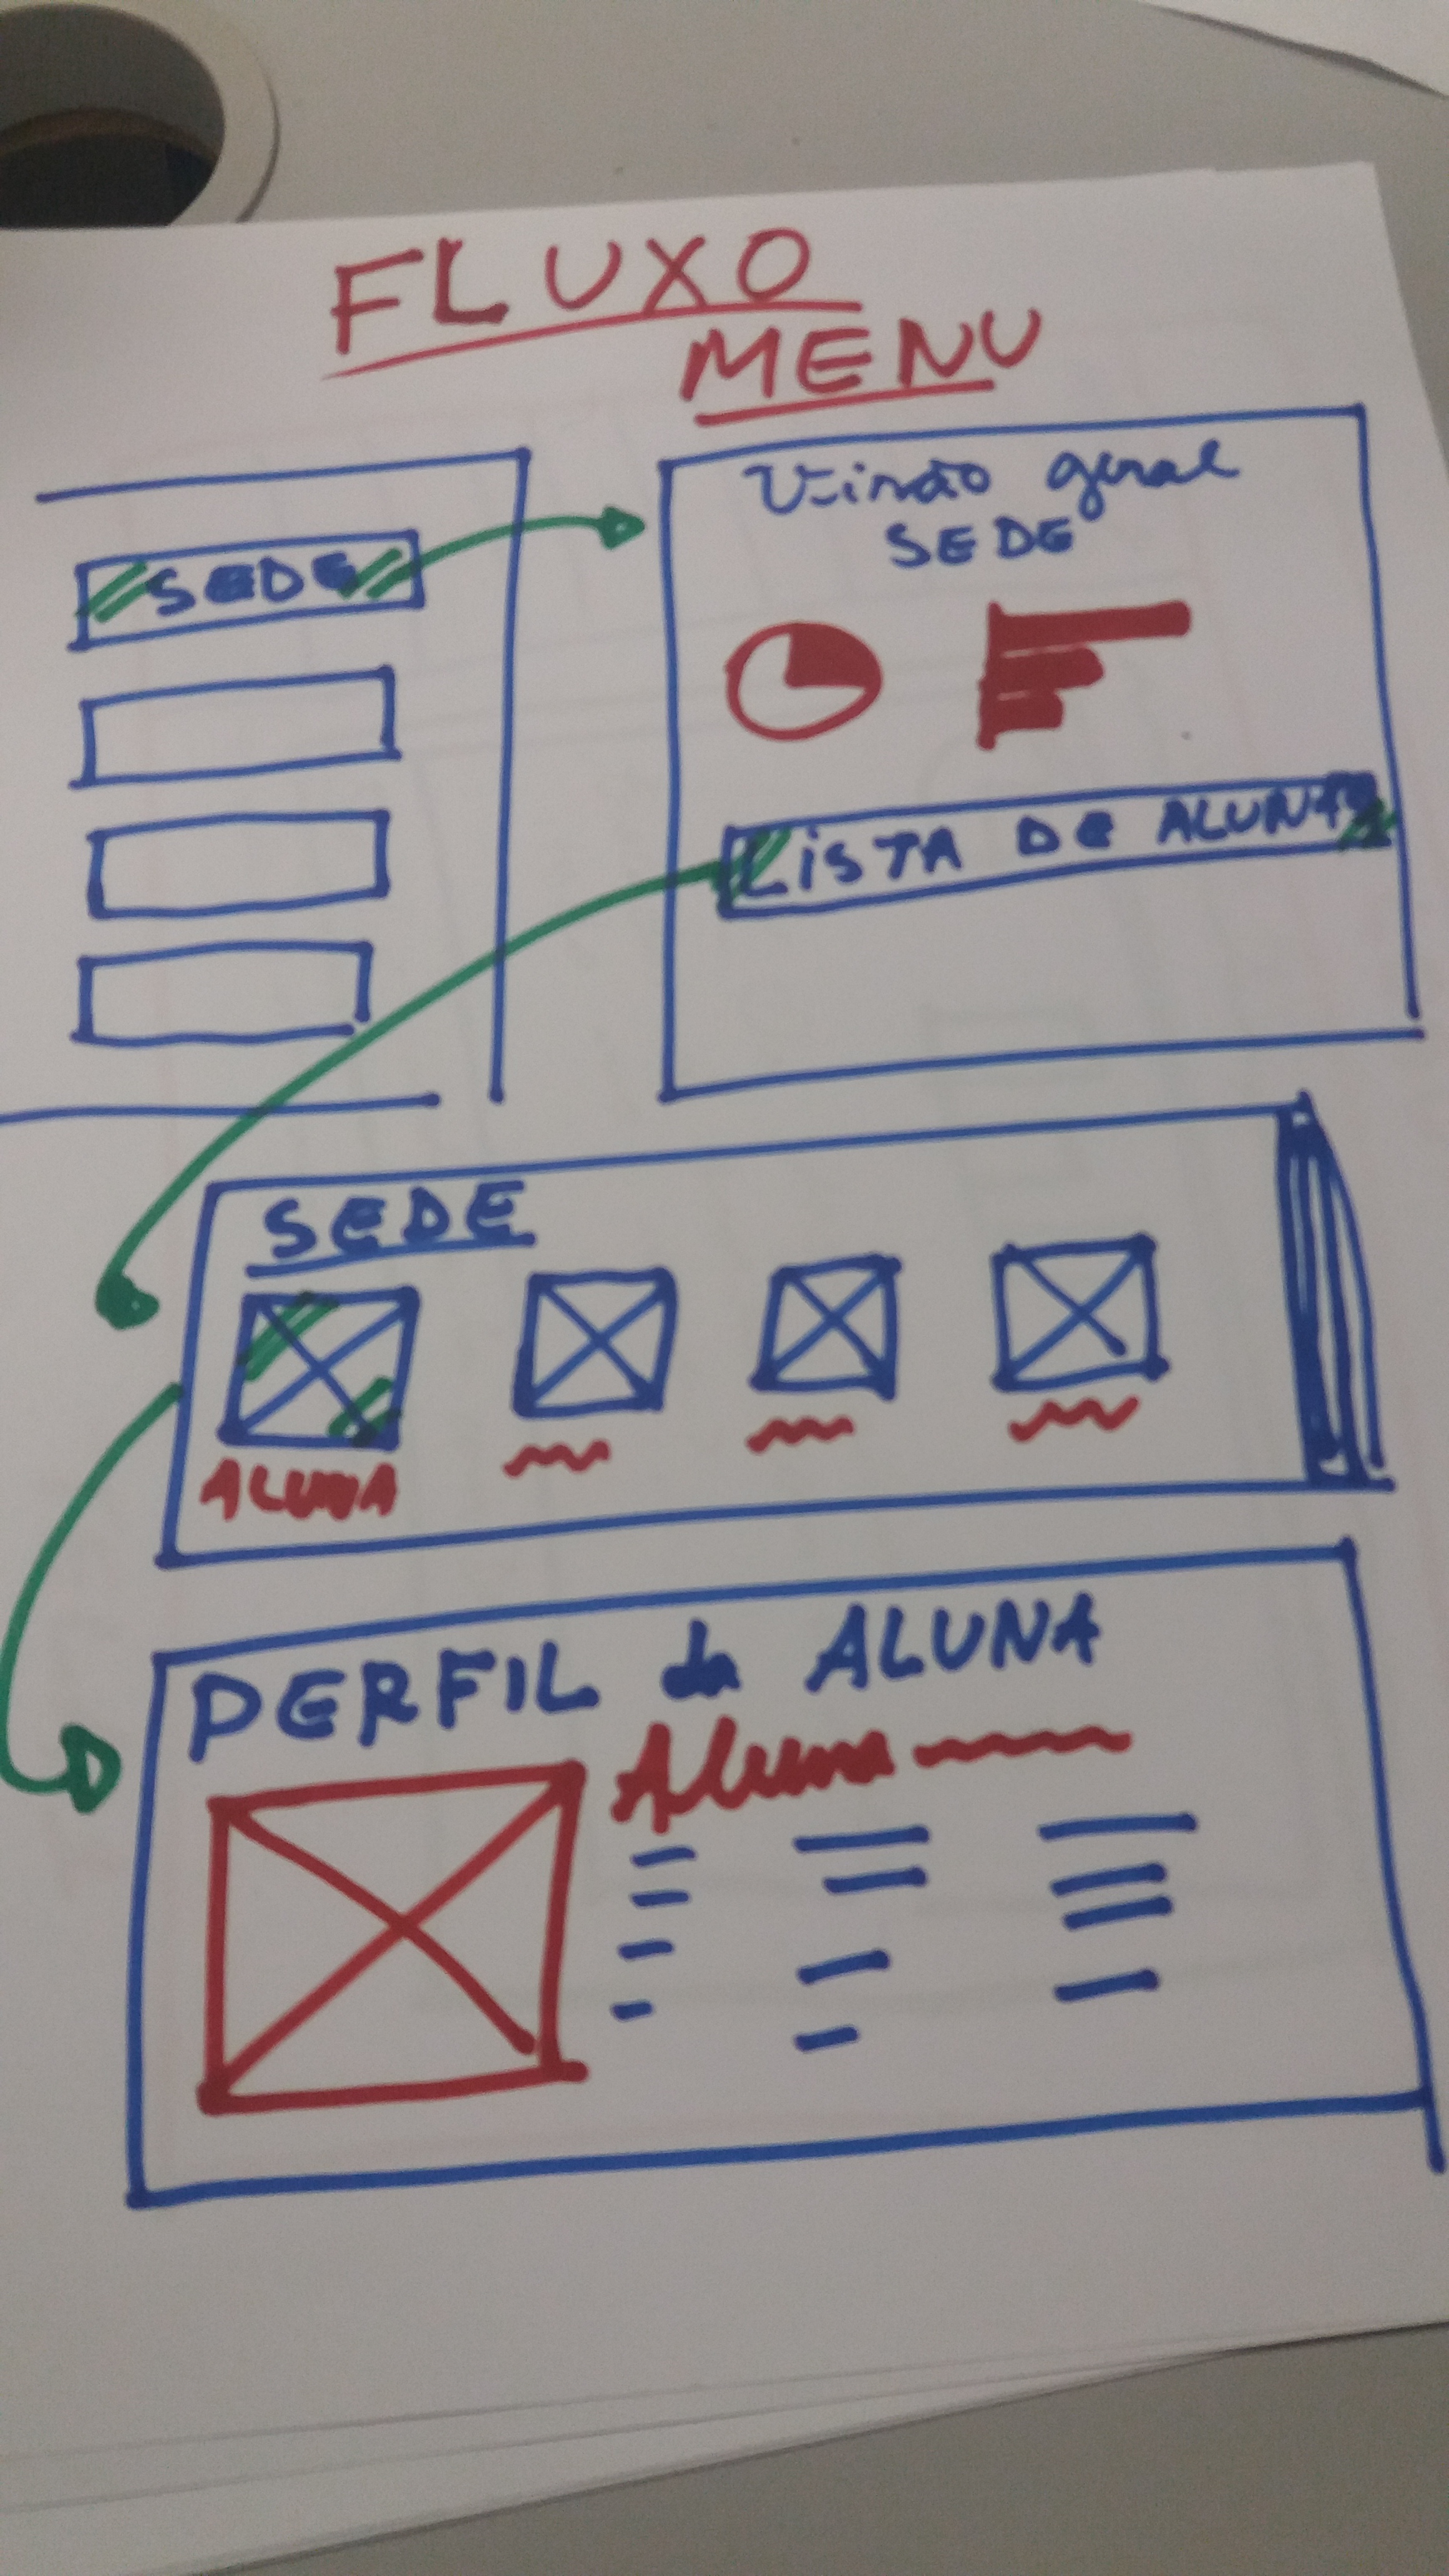 FLUXO
MENU
SEDE
Visão geral
SEDE
LISTA DE ALUNAS
SEDE
ALUNA
PERFIL da ALUNA
Aluna